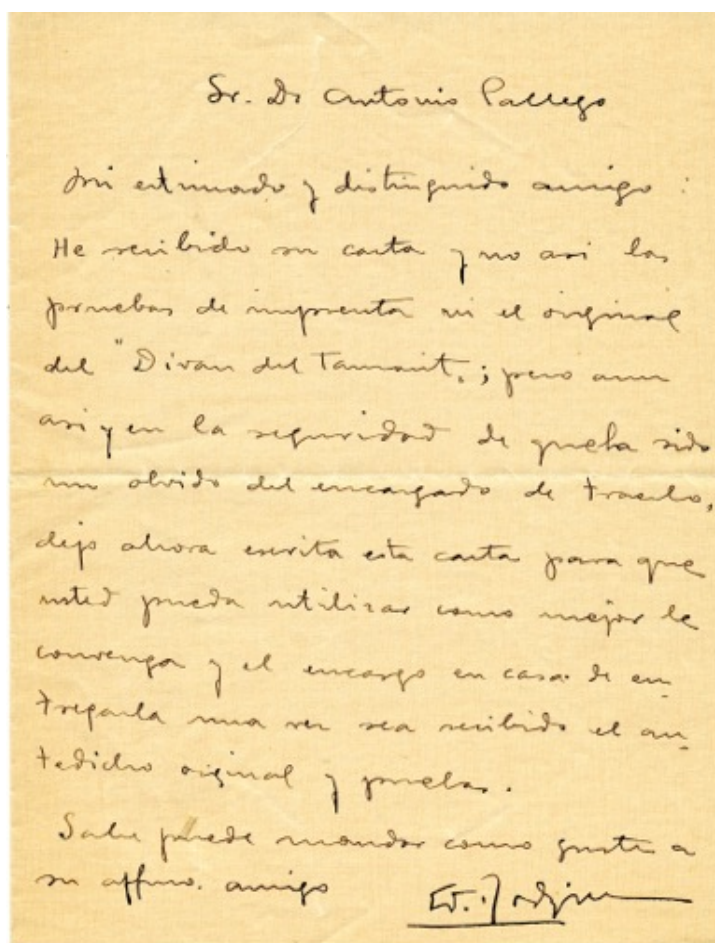 Sr. Dn Antonio Gallego
Mi estimado y distinguido amigo:
He recibido su carta y no asi las
pruebas de imprenta ni el original
del "Divan del Tamarit"; pero aun
asi y en la seguridad de que ha sido
un olvido del encargado de traerlos,
dejo ahora escrita esta carta para que
usted pueda utilizar como mejor le
convenga y el encargo en casa de en-
tregarla una vez sea recibido el an-
tedicho original y pruebas.
Sabe puede mandar como guste a
su affmo. amigo